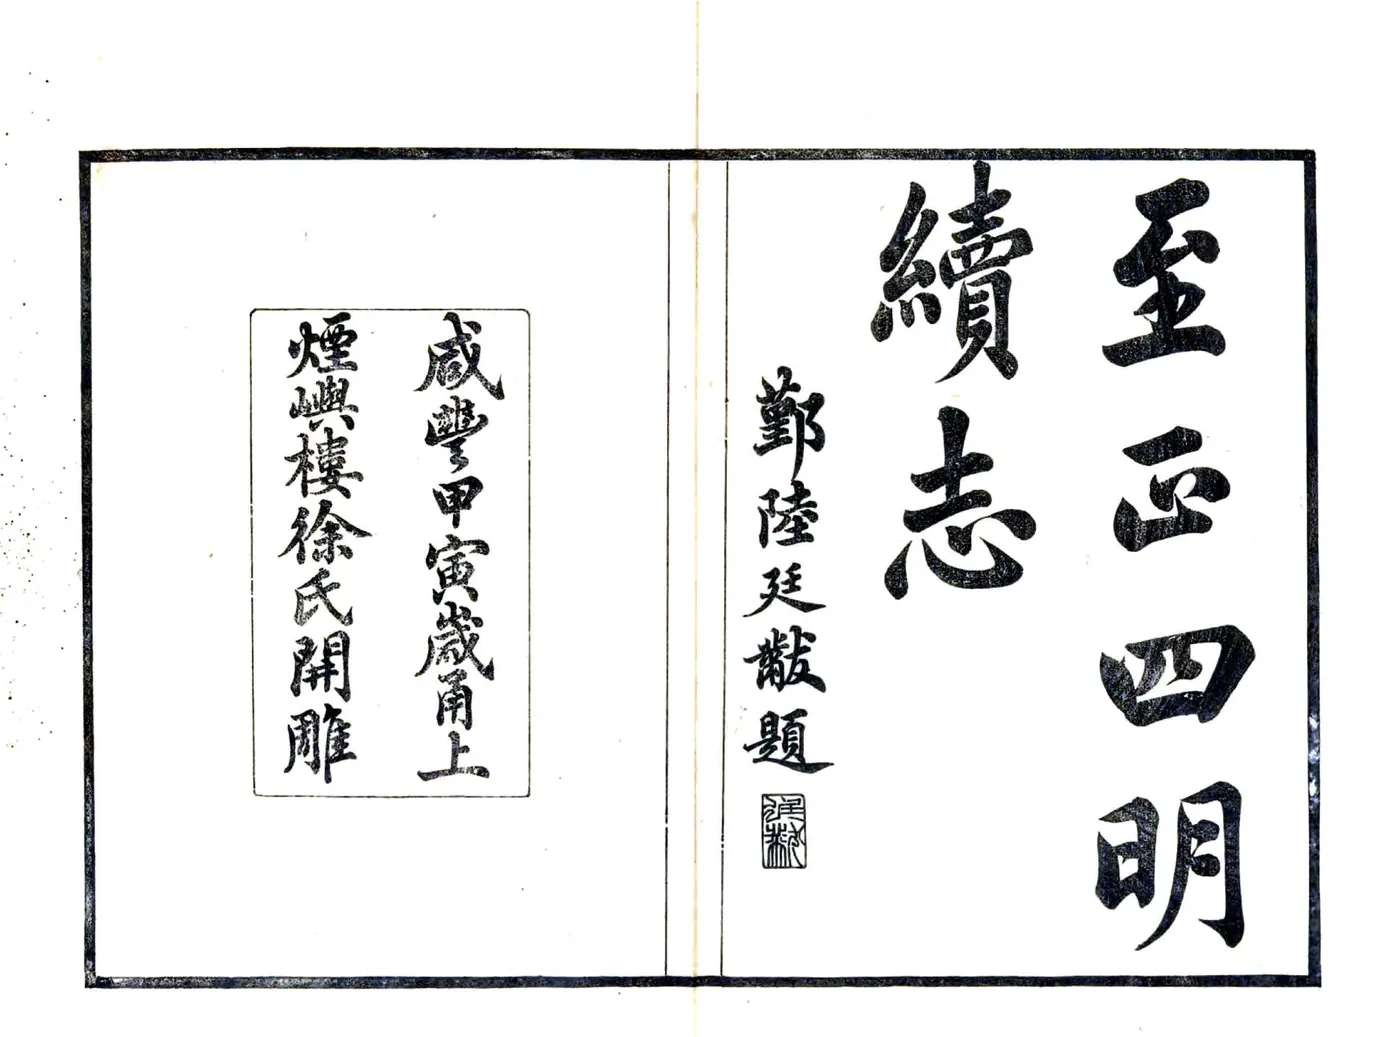 至正四明
續志
鄞陸廷黻題
咸豐甲寅歲甬上
煙嶼樓徐氏開雕